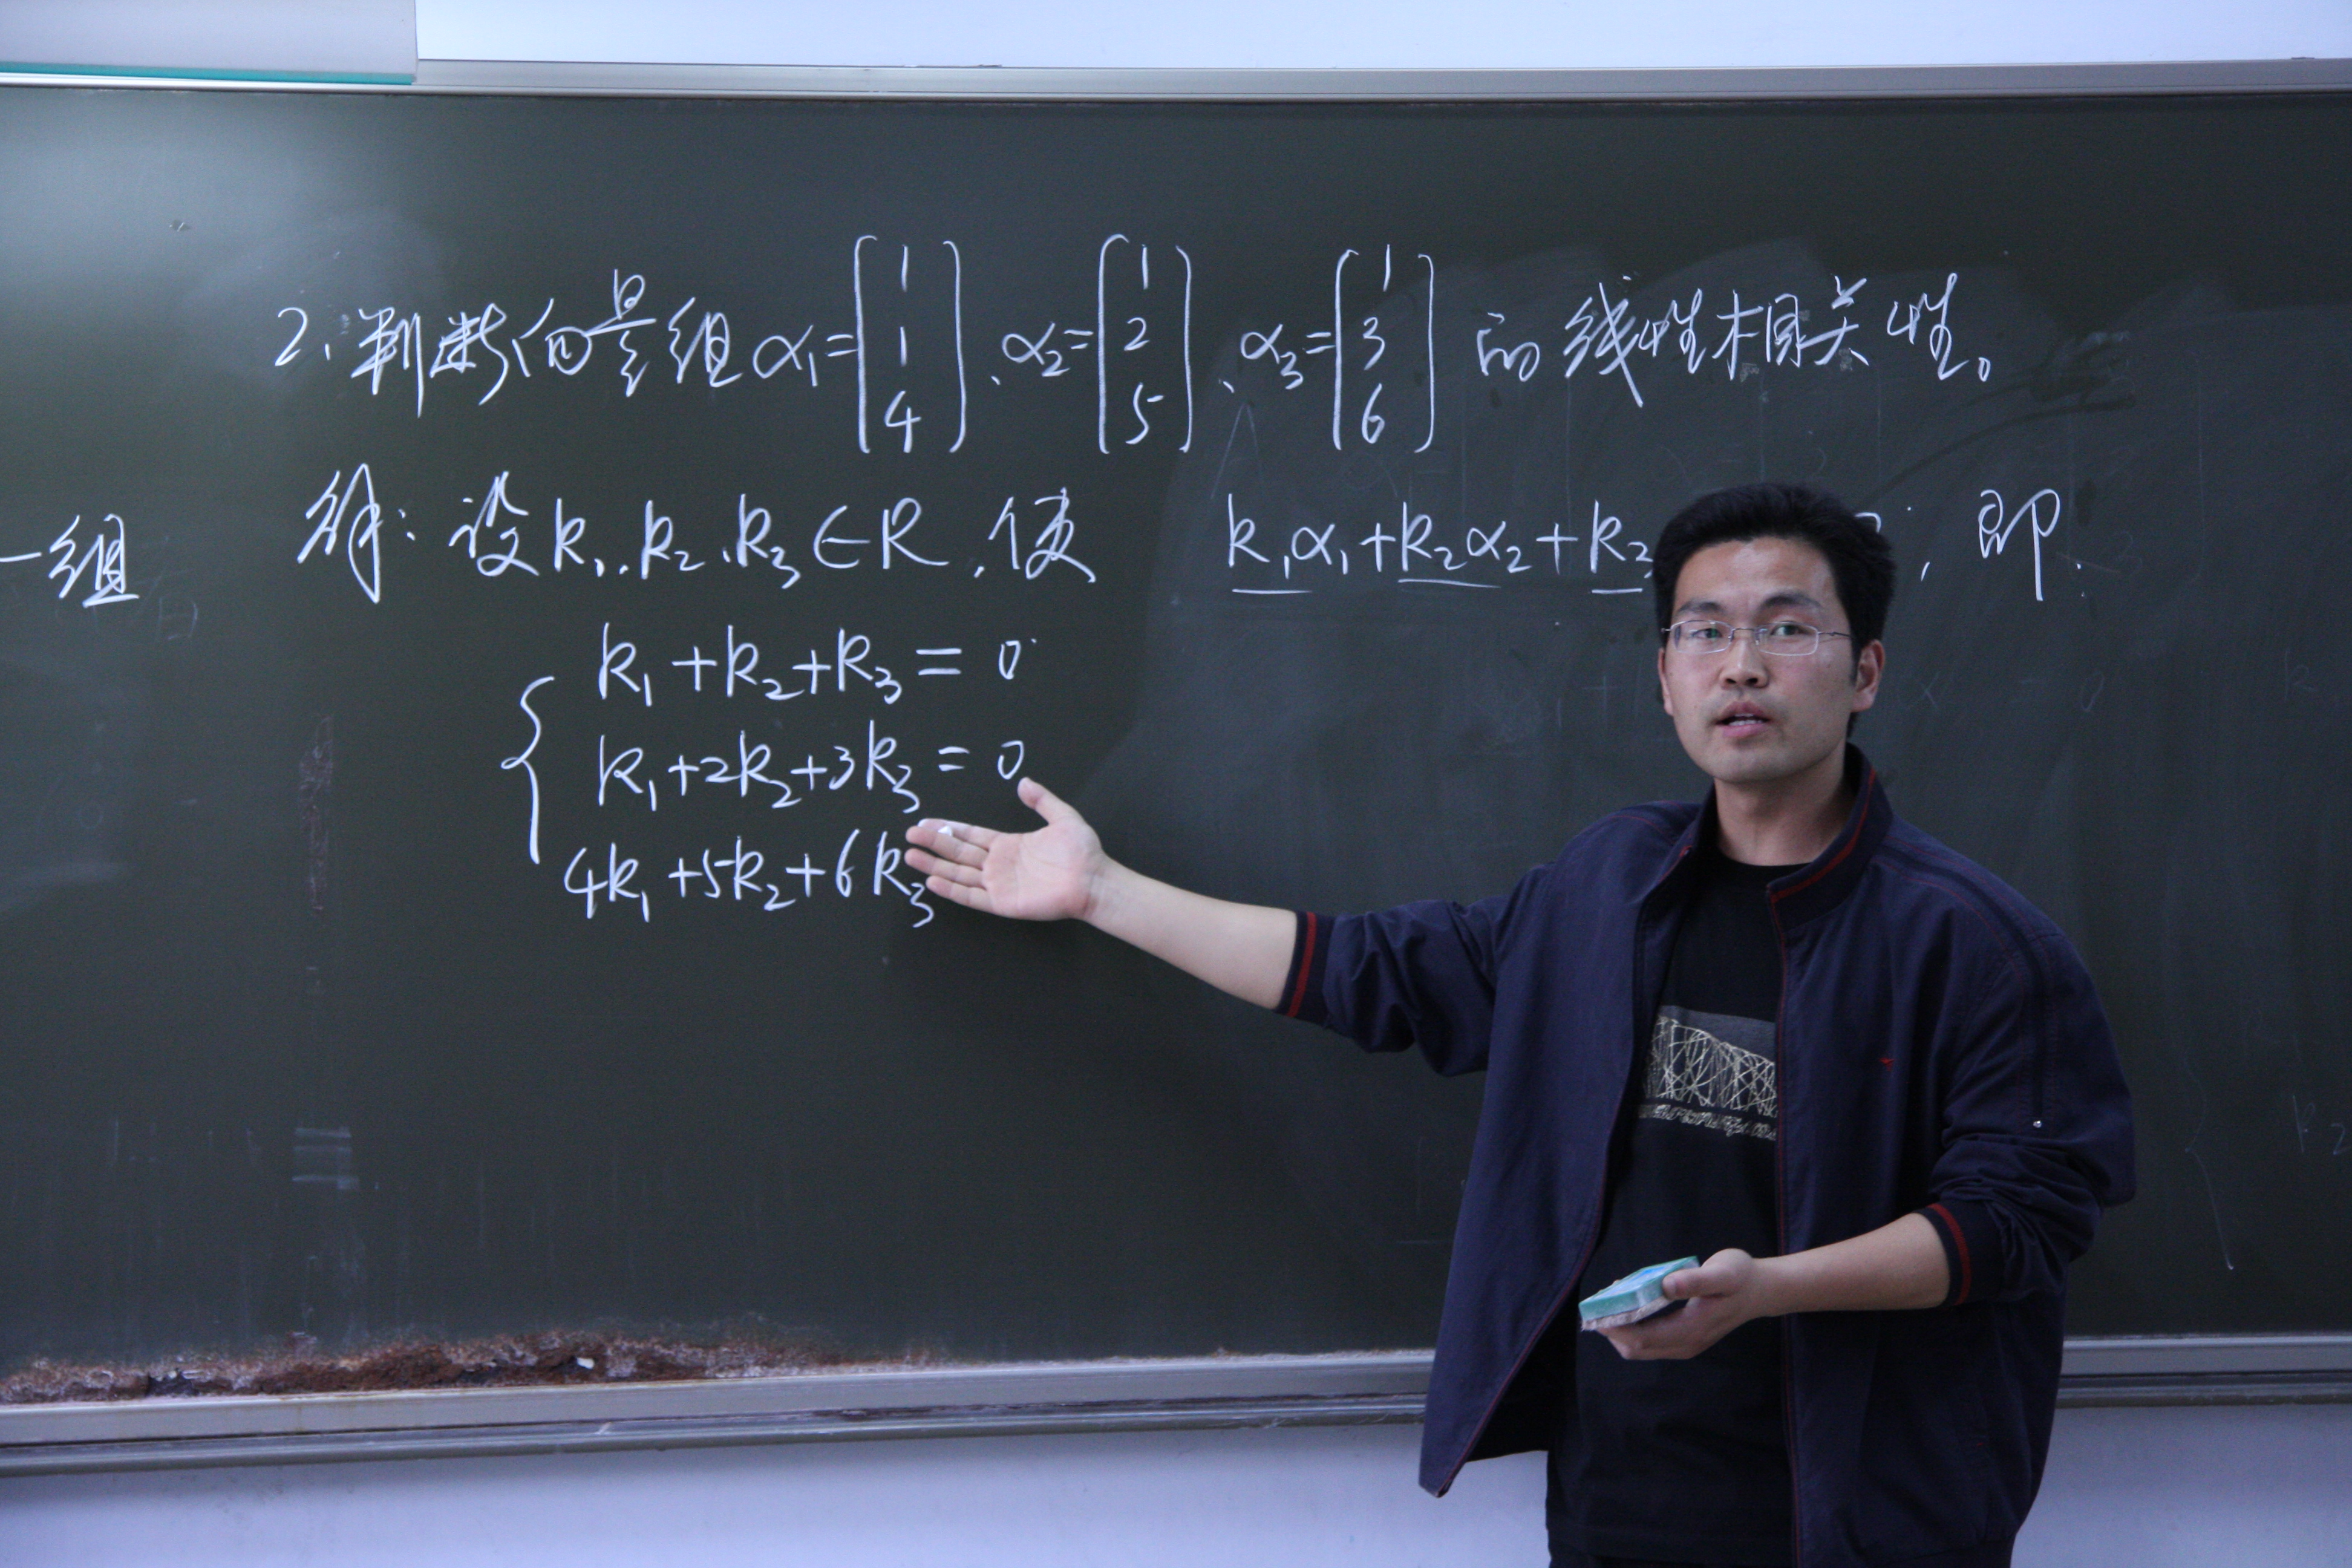 2. 判断向量组 α₁=[1 1 4]、α₂=[1 2 5]、α₃=[1 3 6] 的线性相关性。
一组
解: 设 k₁、k₂、k₃∈R, 使 k₁α₁+k₂α₂+k₃ , 即
k₁+k₂+k₃=0
k₁+2k₂+3k₃=0
4k₁+5k₂+6k₃